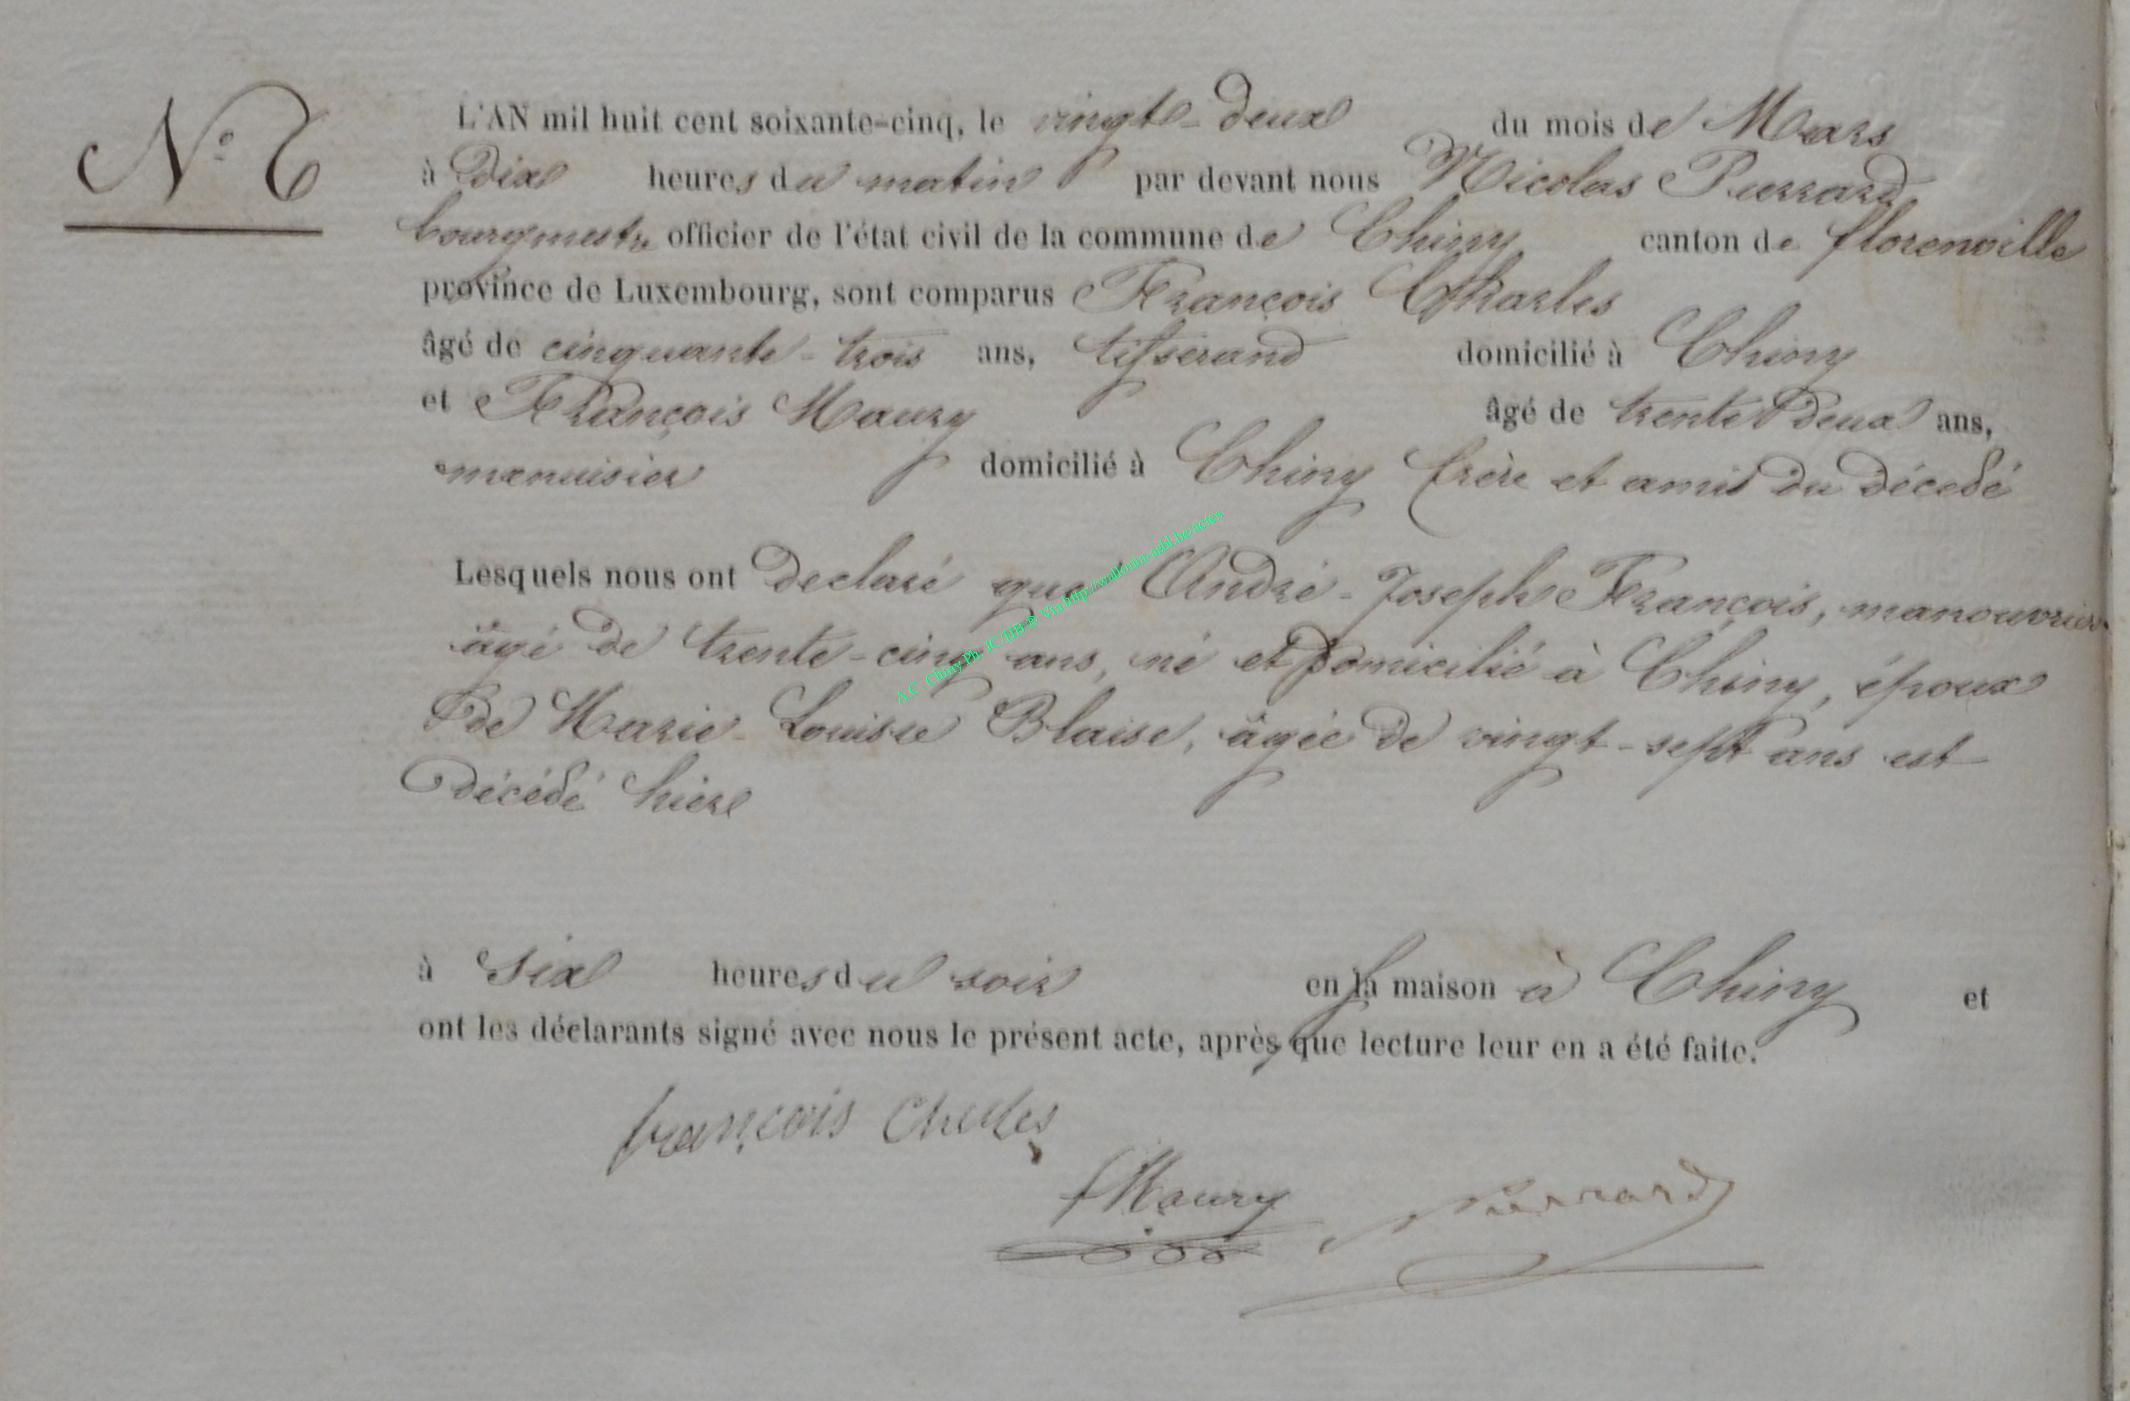 N° 6
L'AN mil huit cent soixante-cinq, le vingt-deux du mois de Mars
à dix heures du matin par devant nous Nicolas Pierrard
bourgmestre officier de l'état civil de la commune de Chiny canton de florenville
province de Luxembourg, sont comparus François Charles
âgé de cinquante-trois ans, tisserand domicilié à Chiny
et François Maury âgé de trente deux ans,
menuisier domicilié à Chiny frère et amis du décedé
Lesquels nous ont declaré que André-Joseph François, manouvrier
âgé de trente-cinq ans, né et domicilié à Chiny, époux
de Marie-Louise Blaise, âgée de vingt-sept ans est
décédé hier
à six heures du soir en sa maison à Chiny et
ont les déclarants signé avec nous le présent acte, après que lecture leur en a été faite.
françois Charles
f Maury Pierrard